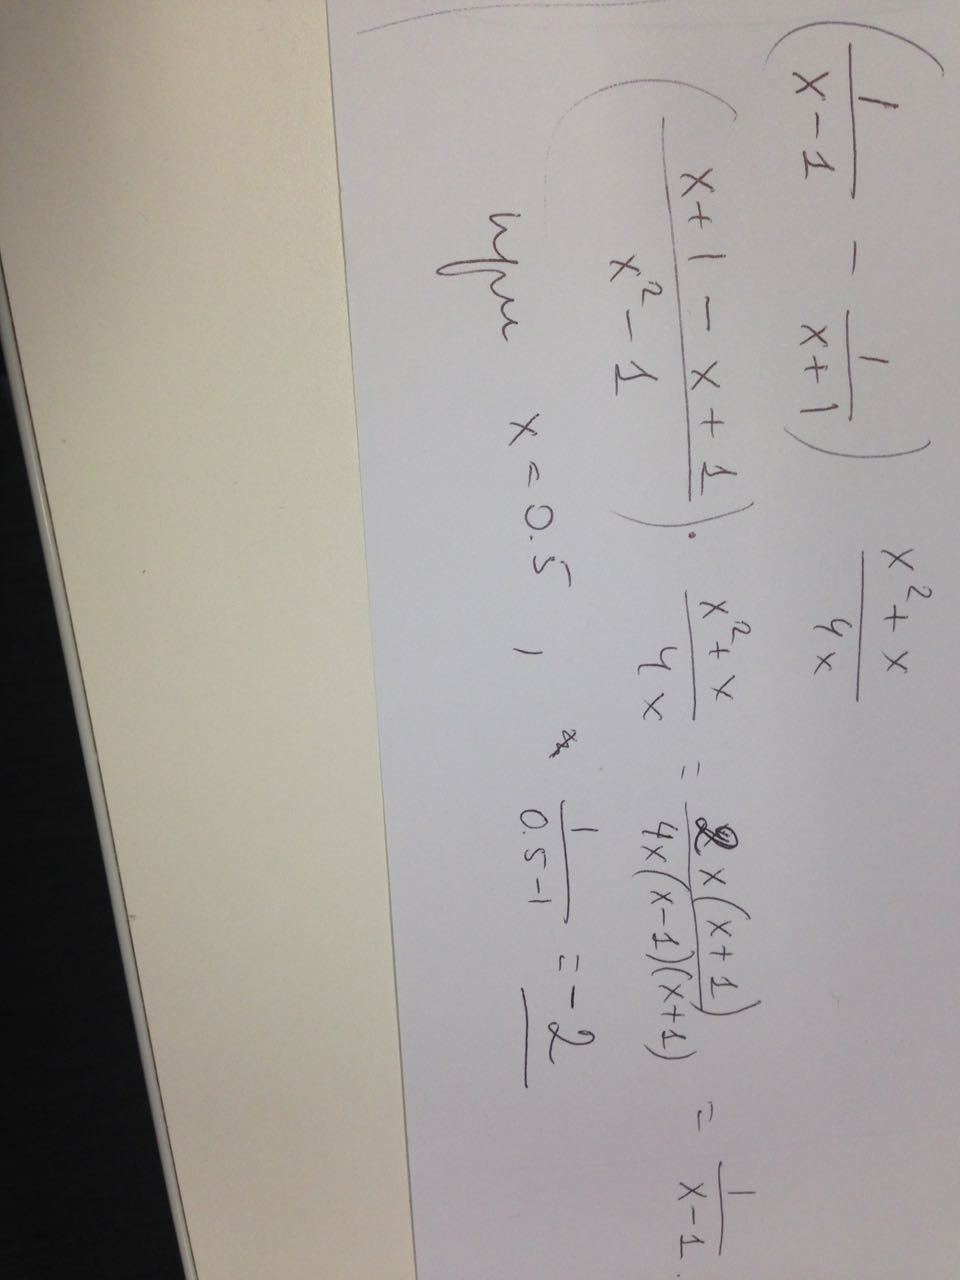 (1/(x-1) - 1/(x+1)) (x²+x)/(4x)
((x+1-x+1)/(x²-1)) · (x²+x)/(4x) = (2x(x+1))/(4x(x-1)(x+1)) = 1/(x-1).
при x = 0.5 , 1/(0.5-1) = -2